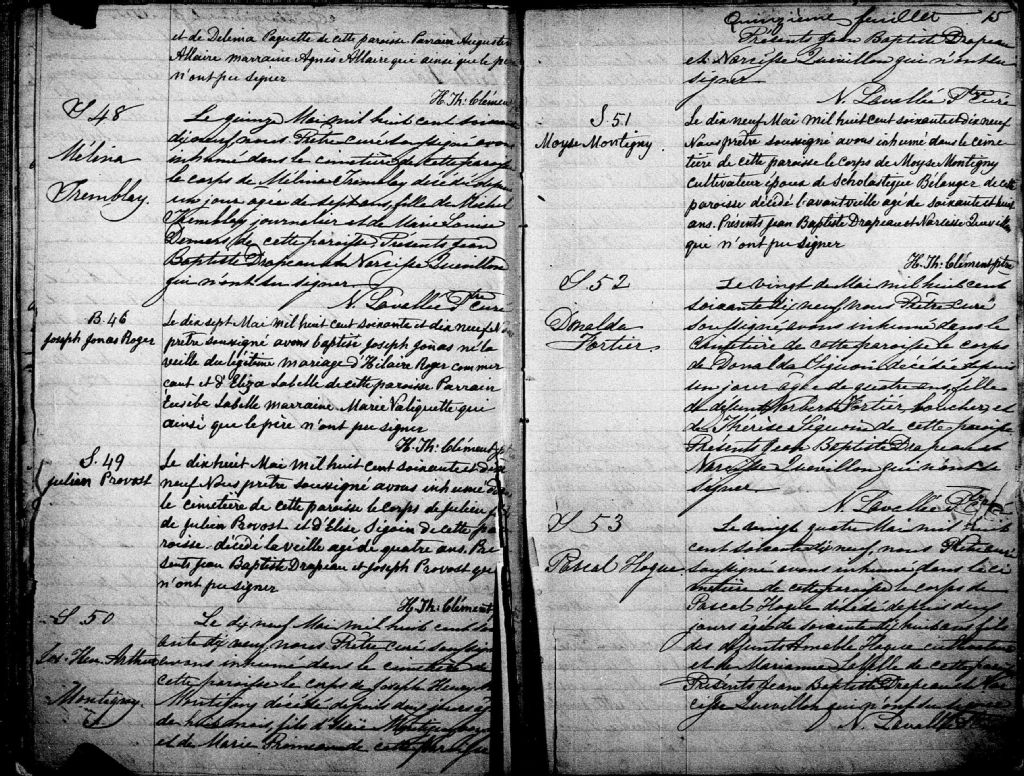 et de Delema Paquette de cette paroisse Parrain Auguste
Allaire marraine Agnès Allaire qui ainsi que le père
n'ont pu signer
H. Th: Clément
S 48
Mélina
Tremblay.
Le quinze Mai mil huit cent soixante
dix neuf nous Prêtre curé soussigné avons
inhumé dans le cimetière de cette paroisse
le corps de Mélina Tremblay décédé depuis
un jour agée de sept ans, fille de Michel
Tremblay journalier et de Marie Louise
Demers de cette paroisse. Présents Jean
Baptiste Drapeau et Narcisse Quevillon
qui n'ont su signer
N. Lavallée Ptre Curé
B. 46
Joseph Jonas Roger
Le dix sept Mai mil huit cent soixante et dix neuf Nous
prêtre soussigné avons baptisé Joseph Jonas né la
veille du légitime mariage d'Hilaire Roger commer
cant et d'Eliza Labelle de cette paroisse Parrain
Eusèbe Labelle marraine Marie Valiquette qui
ainsi que le père n'ont pu signer
H. Th: Clément pt
S. 49
Julien Provost
Le dix huit Mai mil huit cent soixante et dix
neuf Nous prêtre soussigné avons inhumé dans
le cimetière de cette paroisse le corps de Julien fils
de Julien Provost et d'Elise Sigoin de cette pa
roisse décédé la veille agé de quatre ans. Pré
sents Jean Baptiste Drapeau et Joseph Provost qui
n'ont pu signer
H. Th: Clément
S 50
Jos. Hen. Arthur
Montigny.
Le dix neuf Mai mil huit cent soix
ante dix neuf, nous Prêtre curé soussigné
avons inhumé dans le cimetière de
cette paroisse le corps de Joseph Henry
Montigny décédé depuis deux jours agé
de huit mois, fils d'Isaïe Montigny
et de Marie de cette paroisse
Quinzième feuillet 15
Présents Jean Baptiste Drapeau
et Narcisse Quevillon qui n'ont su
signer
N. Lavallée Ptre Curé
S. 51
Moyse Montigny
Le dix neuf Mai mil huit cent soixante et dix neuf
Nous prêtre soussigné avons inhumé dans le cime
tière de cette paroisse le corps de Moyse Montigny
cultivateur époux de Scholastique Bélanger de cette
paroisse décédé l'avant veille agé de soixante et huit
ans. Présents Jean Baptiste Drapeau et Narcisse Quevillon
que n'ont pu signer
H. Th: Clément ptre
S 52
Donalda
Fortier.
Le vingt de Mai mil huit cent
soixante dix neuf nous Prêtre curé
soussigné avons inhumé dans le
cimetière de cette paroisse le corps
de Donalda décédée depuis
un jour agée de quatre ans, fille
de défunt Norbert Fortier, boucher, et
de Thérèse Séguin de cette paroisse
Présents Jean Baptiste Drapeau et
Narcisse Quevillon qui n'ont su
signer
N. Lavallée Ptre
S 53
Pascal Hogue
Le vingt quatre Mai mil huit
cent soixante dix neuf, nous Prêtre curé
soussigné avons inhumé dans le ci
metière de cette paroisse le corps de
Pascal Hogue décédé depuis deux
jours agé de soixante dix huit ans fils
des défunts Amable Hogue cultivateur
et de Marianne de cette paroisse
Présents Jean Baptiste Drapeau et Nar
cisse Quevillon qui n'ont su signer
N. Lavallée Ptre